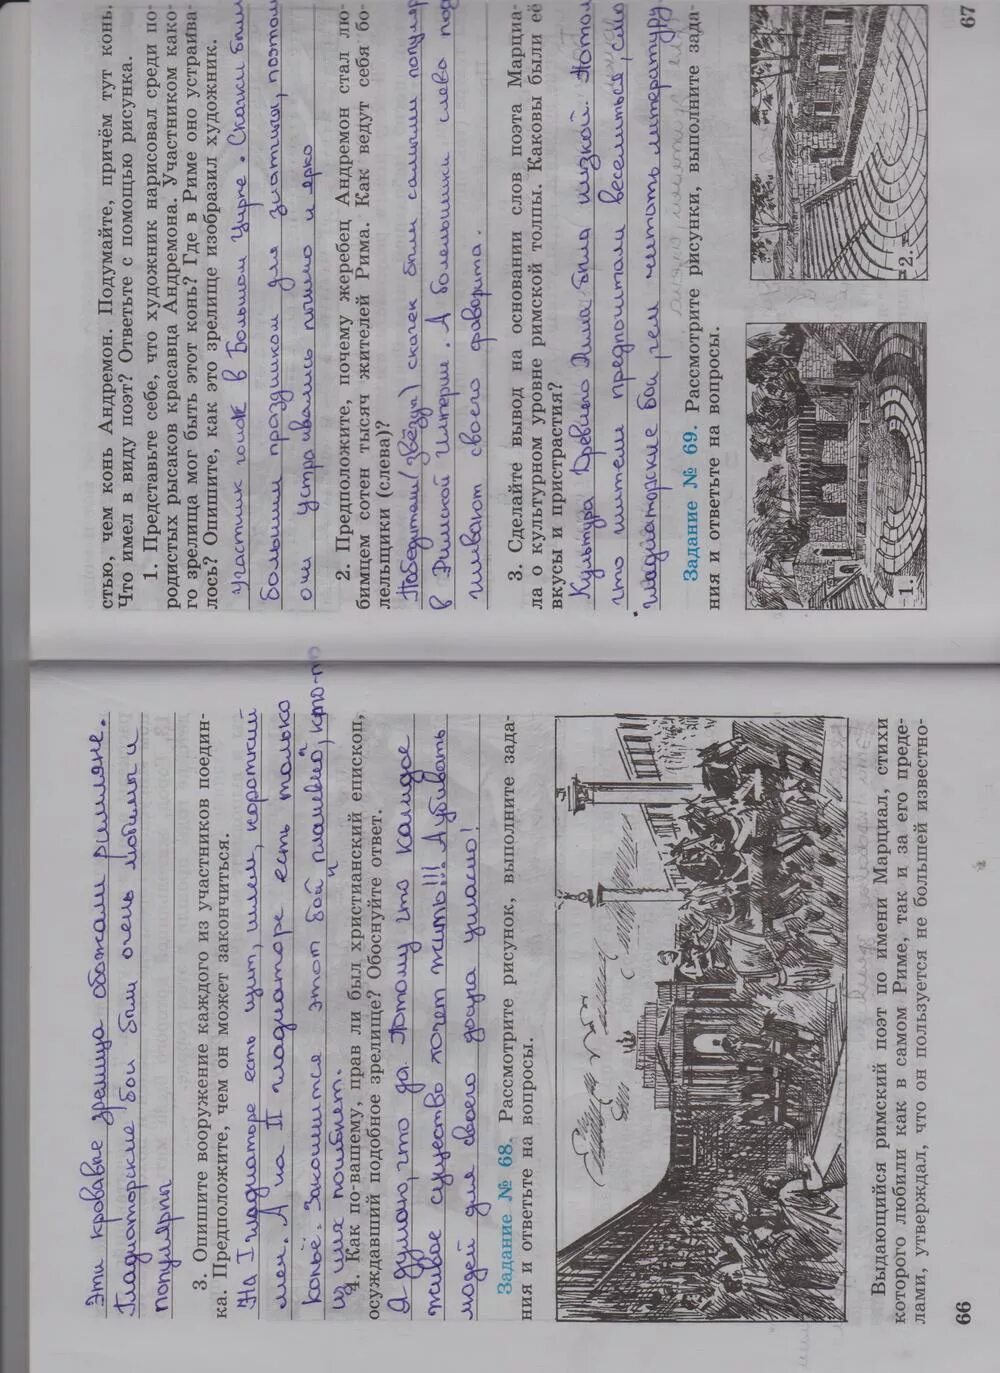 Эти кровавые зрелища обожали римляне.
Гладиаторские бои были очень любимы и
популярны
3. Опишите вооружение каждого из участников поедин-
ка. Предположите, чем он может закончиться.
На I гладиаторе есть щит, шлем, короткий
меч. А на II гладиаторе есть только
копьё. Закончится этот бой плачевно, кто-то
из них погибнет.
4. Как по-вашему, прав ли был христианский епископ,
осуждавший подобное зрелище? Обоснуйте ответ.
Я думаю, что да. Потому что каждое
живое существо хочет жить!!! А убивать
людей для своего досуга ужасно!
Задание № 68. Рассмотрите рисунок, выполните зада-
ния и ответьте на вопросы.
Выдающийся римский поэт по имени Марциал, стихи
которого любили как в самом Риме, так и за его преде-
лами, утверждал, что он пользуется не большей известно-
66
стью, чем конь Андремон. Подумайте, причём тут конь.
Что имел в виду поэт? Ответьте с помощью рисунка.
1. Представьте себе, что художник нарисовал среди по-
родистых рысаков красавца Андремона. Участником како-
го зрелища мог быть этот конь? Где в Риме оно устраива-
лось? Опишите, как это зрелище изобразил художник.
Участник гонок в Большом Цирке. Скачки были
большим праздником для знатных, поэтому
они устраивались пышно и ярко
2. Предположите, почему жеребец Андремон стал лю-
бимцем сотен тысяч жителей Рима. Как ведут себя бо-
лельщики (слева)?
Победители (звёзды) скачек были самыми популяр
в Римской империи. А болельщики слева под
живают своего фаворита.
3. Сделайте вывод на основании слов поэта Марциа-
ла о культурном уровне римской толпы. Каковы были её
вкусы и пристрастия?
Культура Древнего Рима была низкой. Потом
что жители предпочитали веселиться,
гладиаторские бои, чем читать литературу.
Задание № 69. Рассмотрите рисунки, выполните зада-
ния и ответьте на вопросы.
1.
2.
67